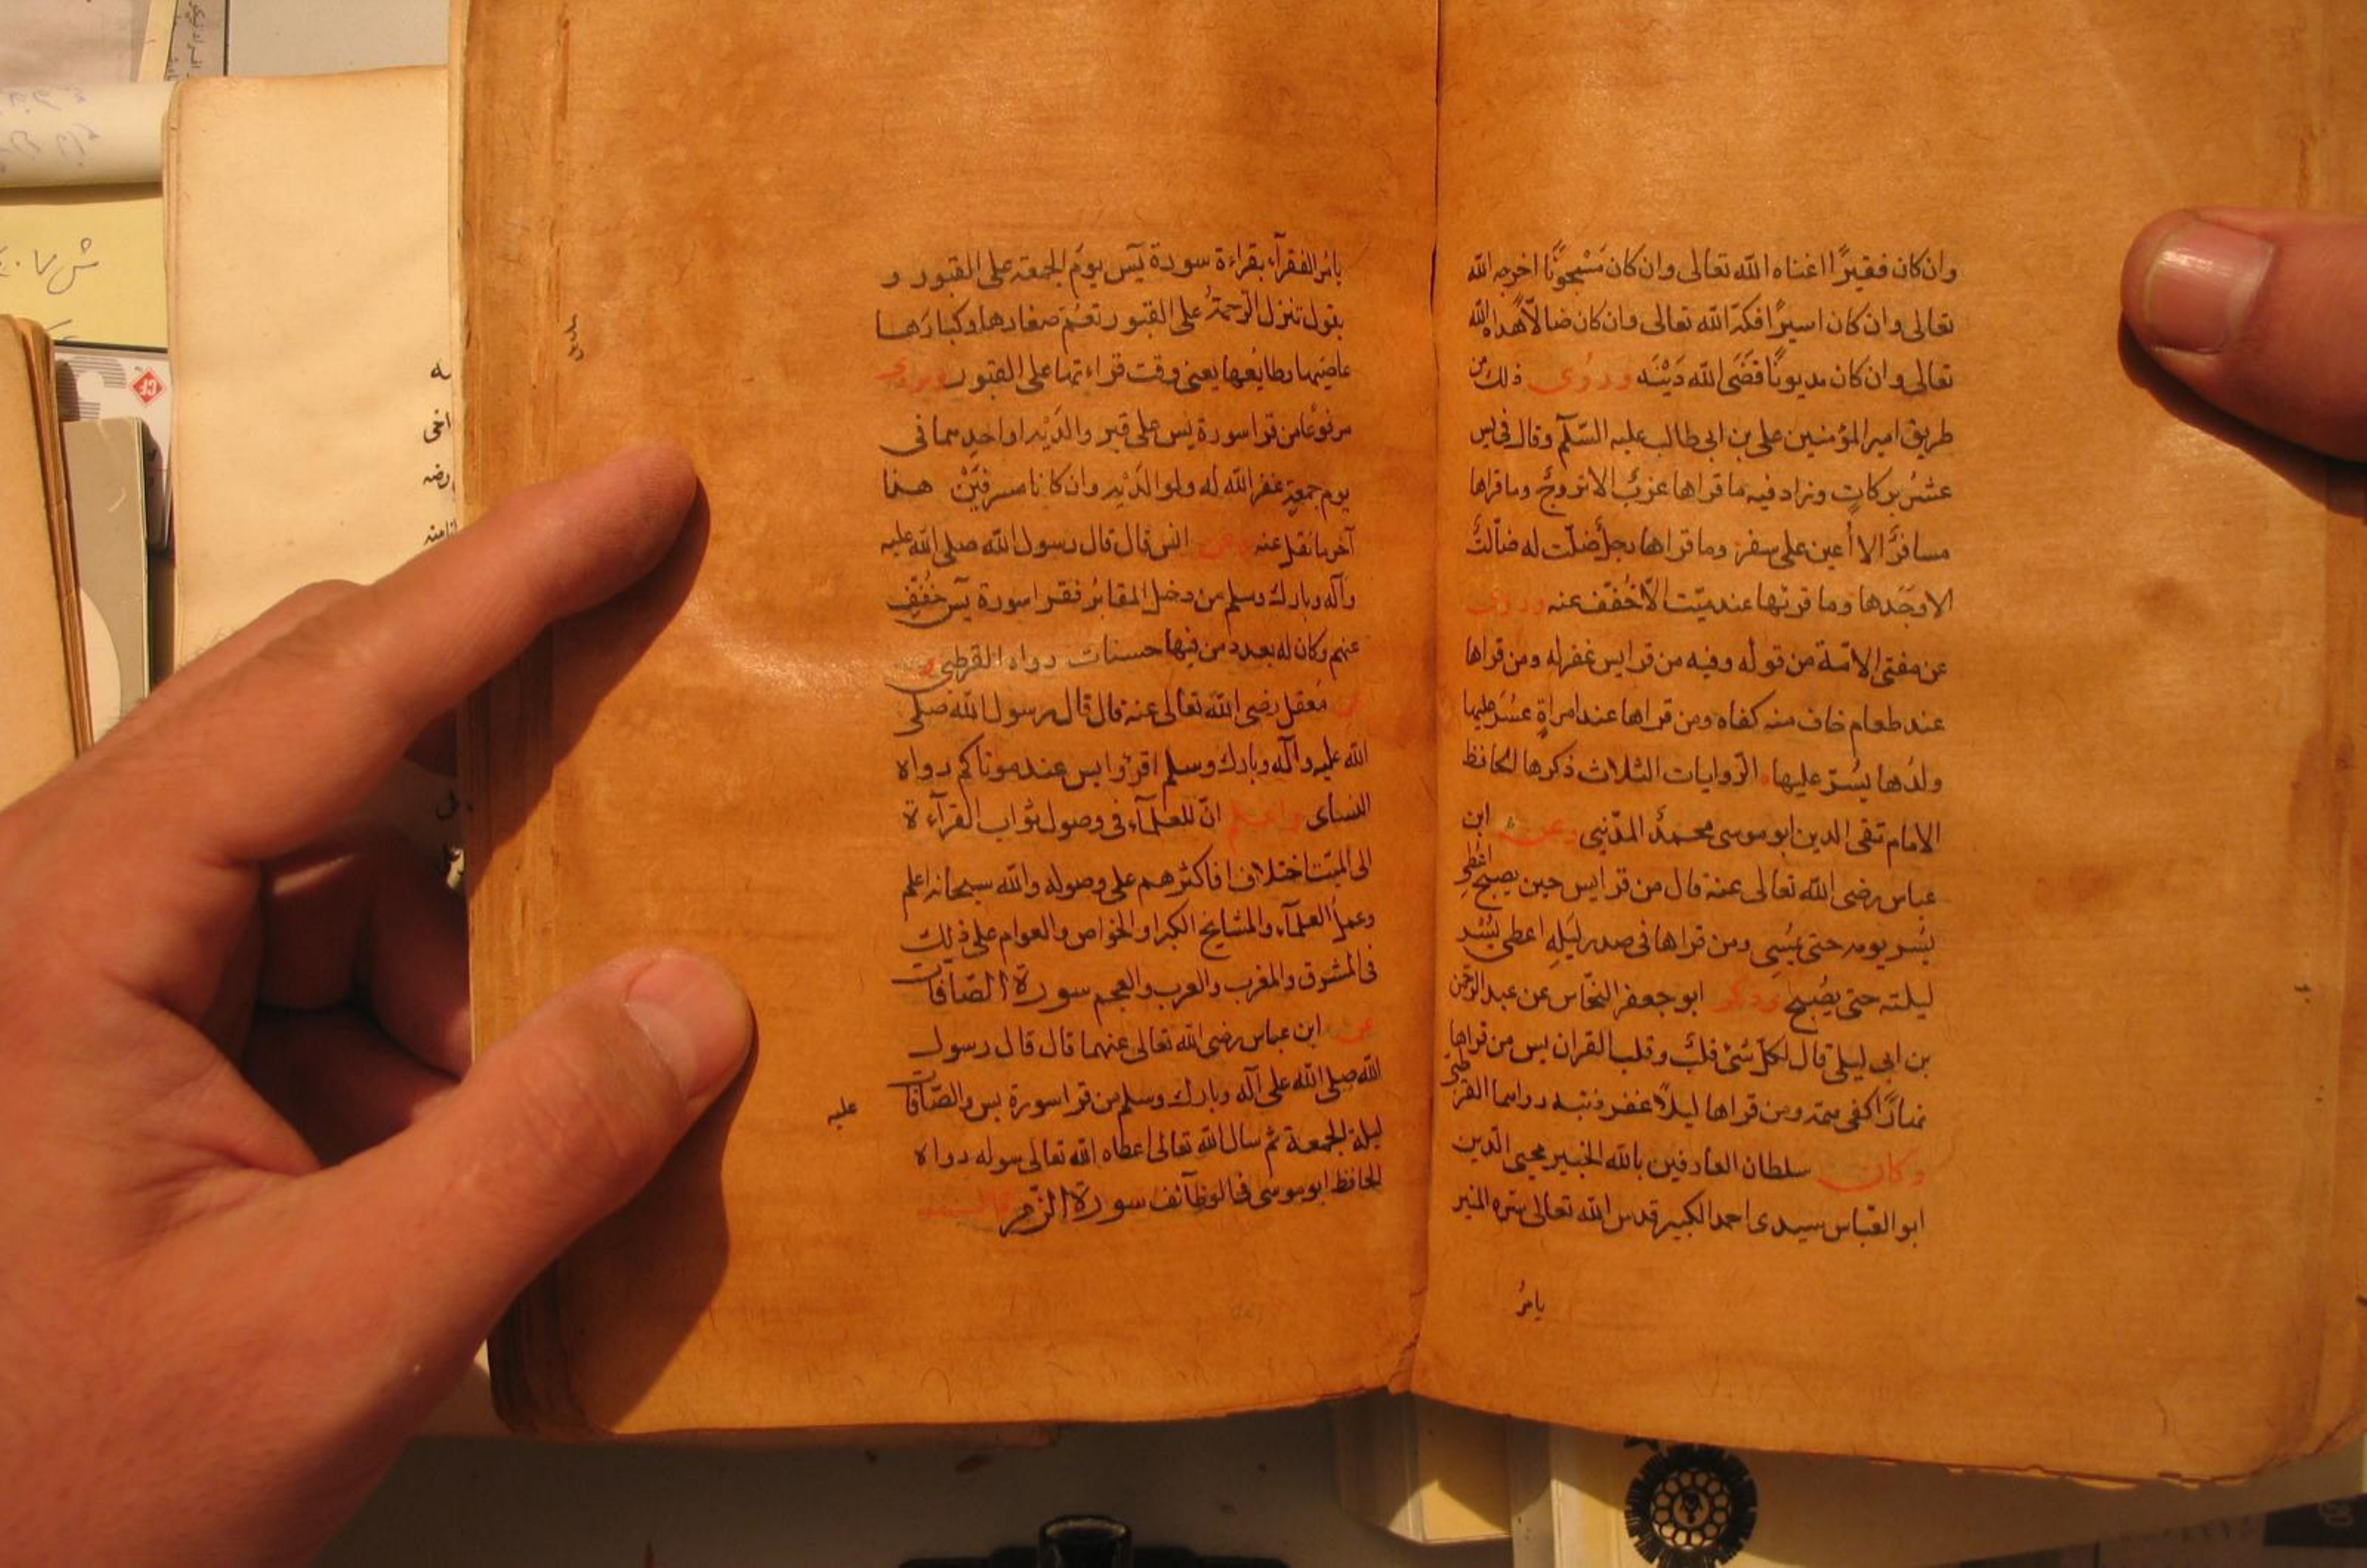 وان كان فقيرًا اغناه الله تعالى وان كان مَسْجُونًا اخرجه الله
تعالى وان كان اسيرًا فكّه الله تعالى وان كان ضالًّا هداه الله
تعالى وان كان مديونًا قضَى الله دَيْنَه وروُى ذلك من
طريق امير المؤمنين على بن ابى طالب عليه السّلام وقال فى يس
عشرُ بركاتٍ وزاد فيه ما قراها عزبٌ الا تزوجَّ وما قراها
مسافرٌ الا أُعين على سفره وما قراها رجل ضلّت له ضالّةٌ
الا وجَدها وما قرئها عند ميّت الّا خُفّف عنه وروى
عن مفتى الامّة من قوله وفيه من قرا يس غفر له ومن قراها
عند طعام خاف منه كفاه ومن قراها عند امراةٍ عسُرَ عليها
ولدُها يسُرّ عليها الرّوايات الثلاث ذكرها الحافظ
الامام تقى الدين ابو موسى محمدٌ المدّنيى وعن ابن
عباس رضى الله تعالى عنه قال من قرا يس حين يصبح اعُطى
يسُر يومه حتى يمُسِى ومن قراها فى صدر ليَلِه اعطى يسُر
ليلته حتى يصُبح وذكر ابو جعفر النحّاس عن عبد الرحمن
بن ابى ليلى قال لكلّ شئ قلبٌ وقلب القران يس من قراها
نهارًا كفى همّه ومن قراها ليلًا غفر ذنبه رواهما القرطبى
وكان سلطان العارفين بالله الخبير محيى الدّين
ابو العبّاس سيدى احمد الكبير قدس الله تعالى سّره المنير
يامرُ
يامُر الفقرآء بقراءة سورة يٓس يومَ الجمعة على القبور و
يقول تنزل الرّحمةُ على القبور تعُمّ صغارها وكبارَها
عاصَيها وطايعُها يعنى وقت قراءتها على القبور ويروى
مرفوعًا من قرا سورة يس على قبر والدَيْه او احدِهما فى
يوم جمعةٍ غفر الله له ولوالدَيْه وان كانا مسرفَيْن هذا
آخر ما نقل عنه وعن انس قال قال رسول الله صلى الله عليه
وآله وبارك وسلم من دخل المقابرُ فقرا سورة يٓس خُفّف
عنهم وكان له بعدد من فيها حسنات رواه القرطبى و
عن مَعقل رضى الله تعالى عنه قال قال رسول الله صلى
الله عليه وآله وبارك وسلم اقرؤا يس عند موتاكم رواه
النسأى واعلم انّ للعلمآء فى وصول ثواب القرآءة
الى الميّت اختلافا فاكثرهم على وصوله والله سبحانه اعلم
وعملُ العلمآء والمشايخ الكبراو الخواص والعوام على ذلك
فى المشرق والمغرب والعرب والعجم سورة الصّافات
عن ابن عباس رضى الله تعالى عنهما قال قال رسول
الله صلى الله على آله وبارك وسلم من قرا سورة يس والصّافات
عليه
ليلة الجمعة ثم سال الله تعالى اعطاه الله تعالى سوله رواه
الحافظ ابو موسى فى الوظآئف سورة الزّمر